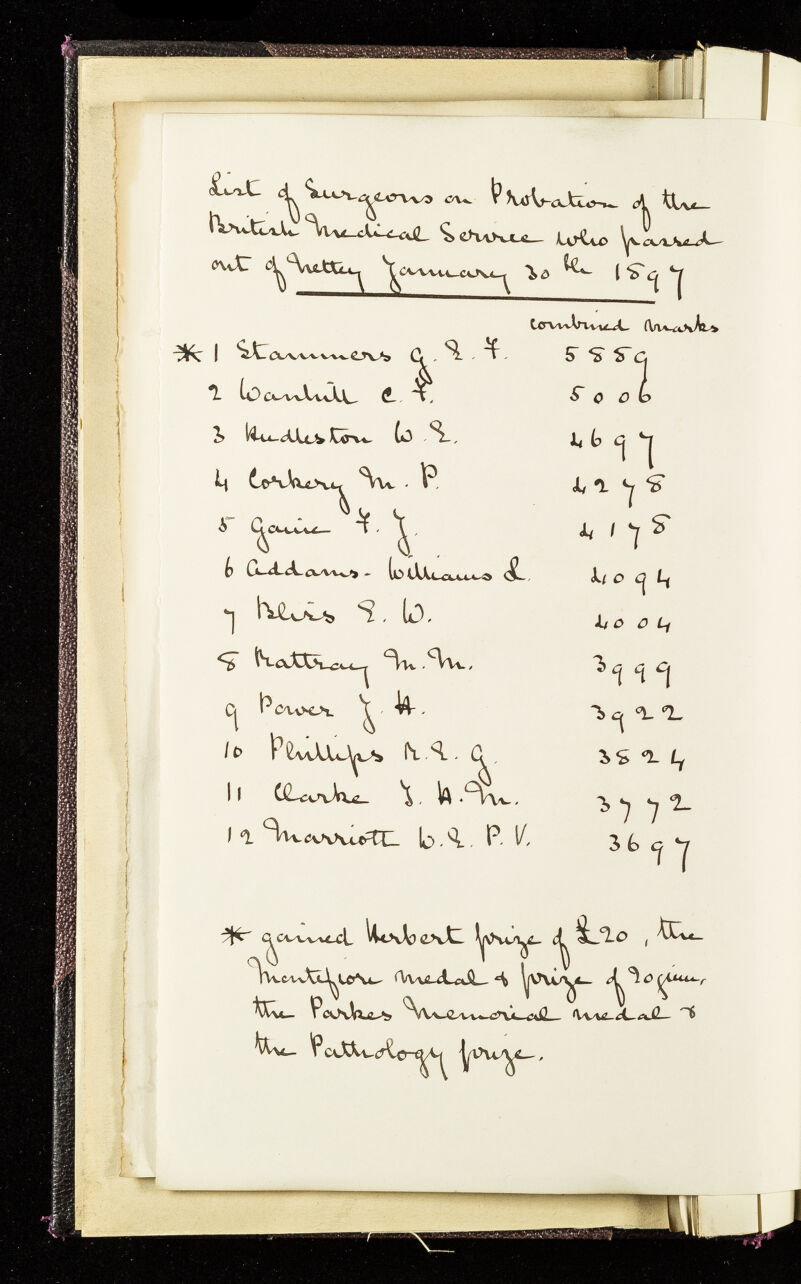 List of Surgeons on Probation of the
British Medical Service who passed
out of Netley January 30th 1897
combined marks
* 1 Stammers G. E. F. 5889
2 Wanhill C. F. 5006
3 Hudleston W. E. 4697
4 Corkery M. P. 4278
5 Gaine F. J. 4178
6 Addams-Williams L. 4094
7 Bliss E. W. 4004
8 Rattray M. M. 3999
9 Power J. H. 3922
10 Phillips R. E. G. 3824
11 Clarke J. H. M. 3772
12 Marriott W. E. P. V. 3697
* gained Herbert prize of £20, the
Montefiore medal & prize of 20
the Parkes Memorial medal &
the Pathology prize.